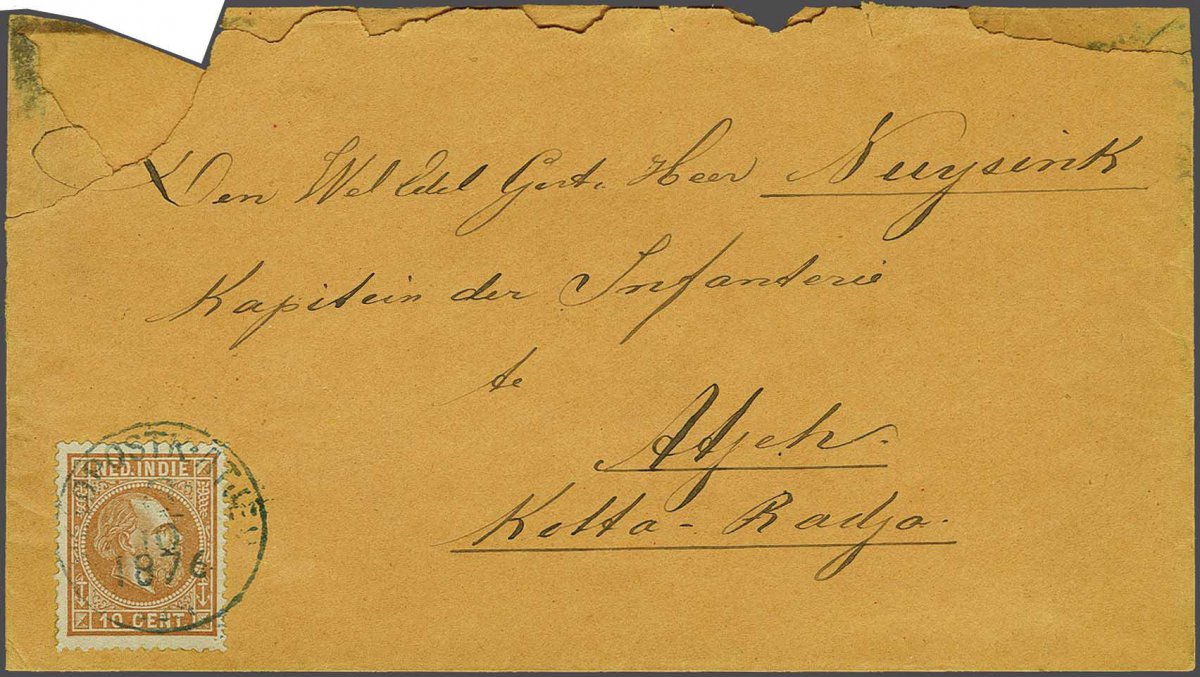 Den Wel Edel Gest. Heer Nuysink
Kapitein der Infanterie
te
Atjeh.
Kotta-Radja.
NED. INDIE
10
1876
10 CENT.